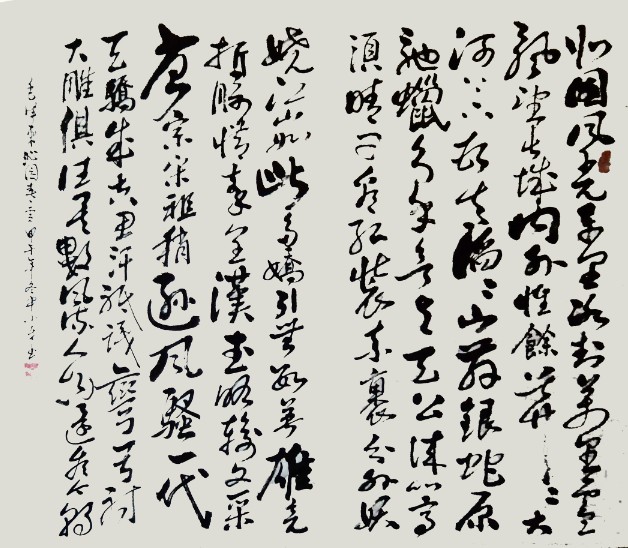 北国风光千里冰封萬里雪
飘望长城内外惟餘莽〻大
河上下顿失滔〻山舞銀蛇原
馳蠟象欲与天公试比高
须晴日看红装素裹分外妖
娆江山如此多嬌引無数英雄竞
折腰惜秦皇漢武略输文采
唐宗宋祖稍逊风騷一代
天驕成吉思汗祗識彎弓射
大雕俱往矣數风流人物还看今朝
毛泽东沁园春雪甲午年冬月小